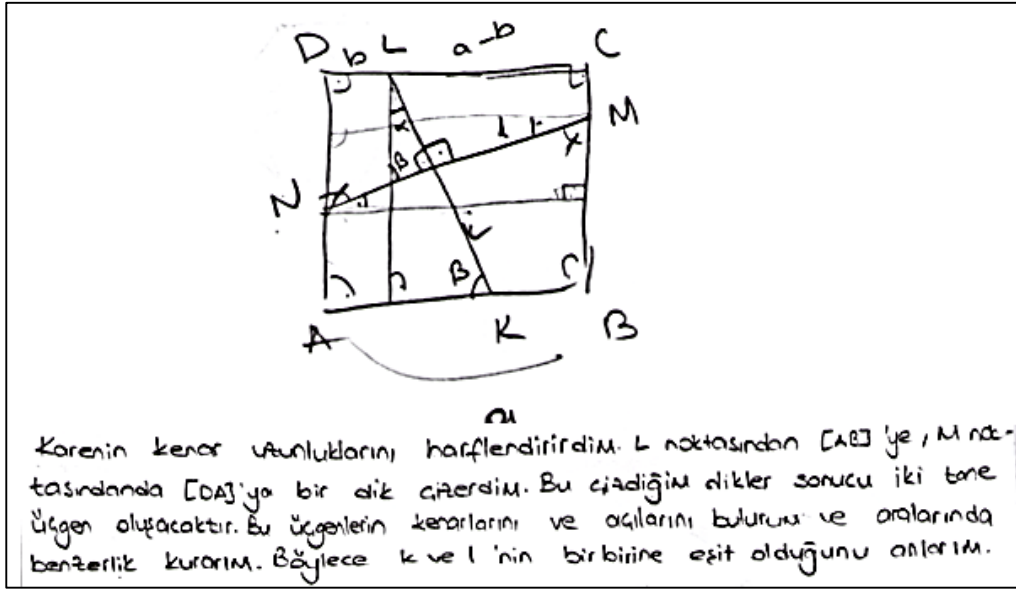 D b L a-b C
M
α
β
l
x
N
k
β
A K B
a
Karenin kenar uzunluklarını harflendirirdim. L noktasından [AB]'ye, M nok-
tasındanda [DA]'ya bir dik çizerdim. Bu çizdiğim dikler sonucu iki tane
üçgen oluşacaktır. Bu üçgenlerin kenarlarını ve açılarını bulurum ve aralarında
benzerlik kurarım. Böylece k ve l'nin birbirine eşit olduğunu anlarım.